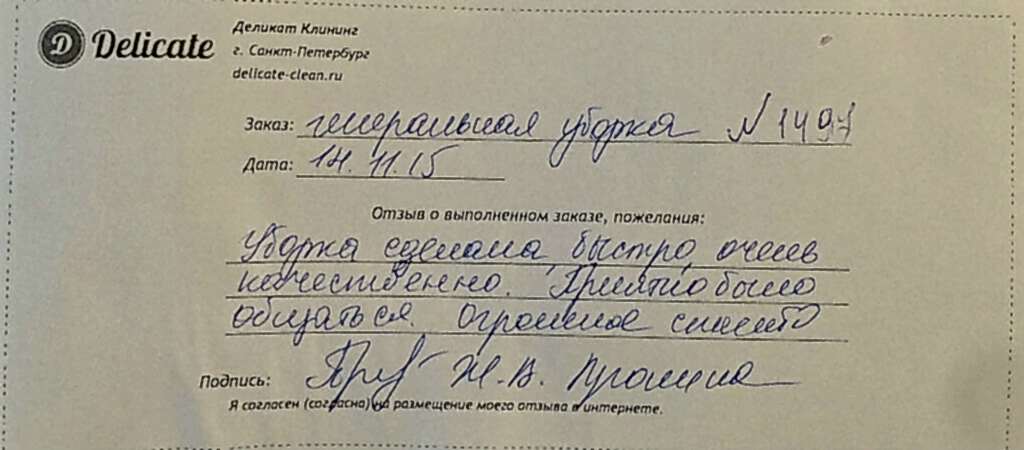 D Delicate
Деликат Клининг
г. Санкт-Петербург
delicate-clean.ru
Заказ: генеральная уборка N 1497
Дата: 14.11.15
Отзыв о выполненном заказе, пожелания:
Уборка сделана быстро, очень
качественно. Приятно было
общаться. Огромное спасибо
Подпись: Н.В.
Я согласен (согласна) на размещение моего отзыва в интернете.